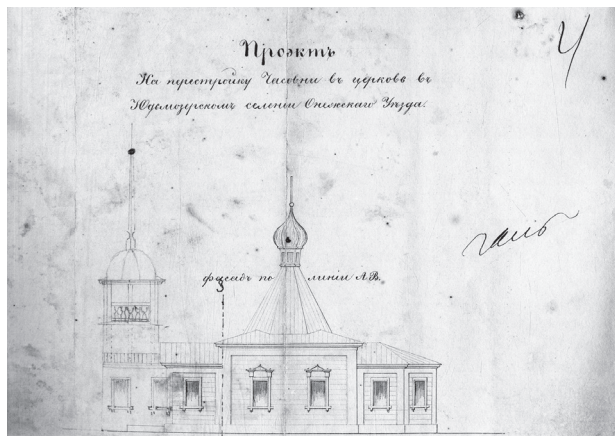 Проэктъ
На перестройку Часовни въ церковь въ
Юдомозерскомъ селеніи Онежскаго Уѣзда.
фасадъ по линіи А.В.